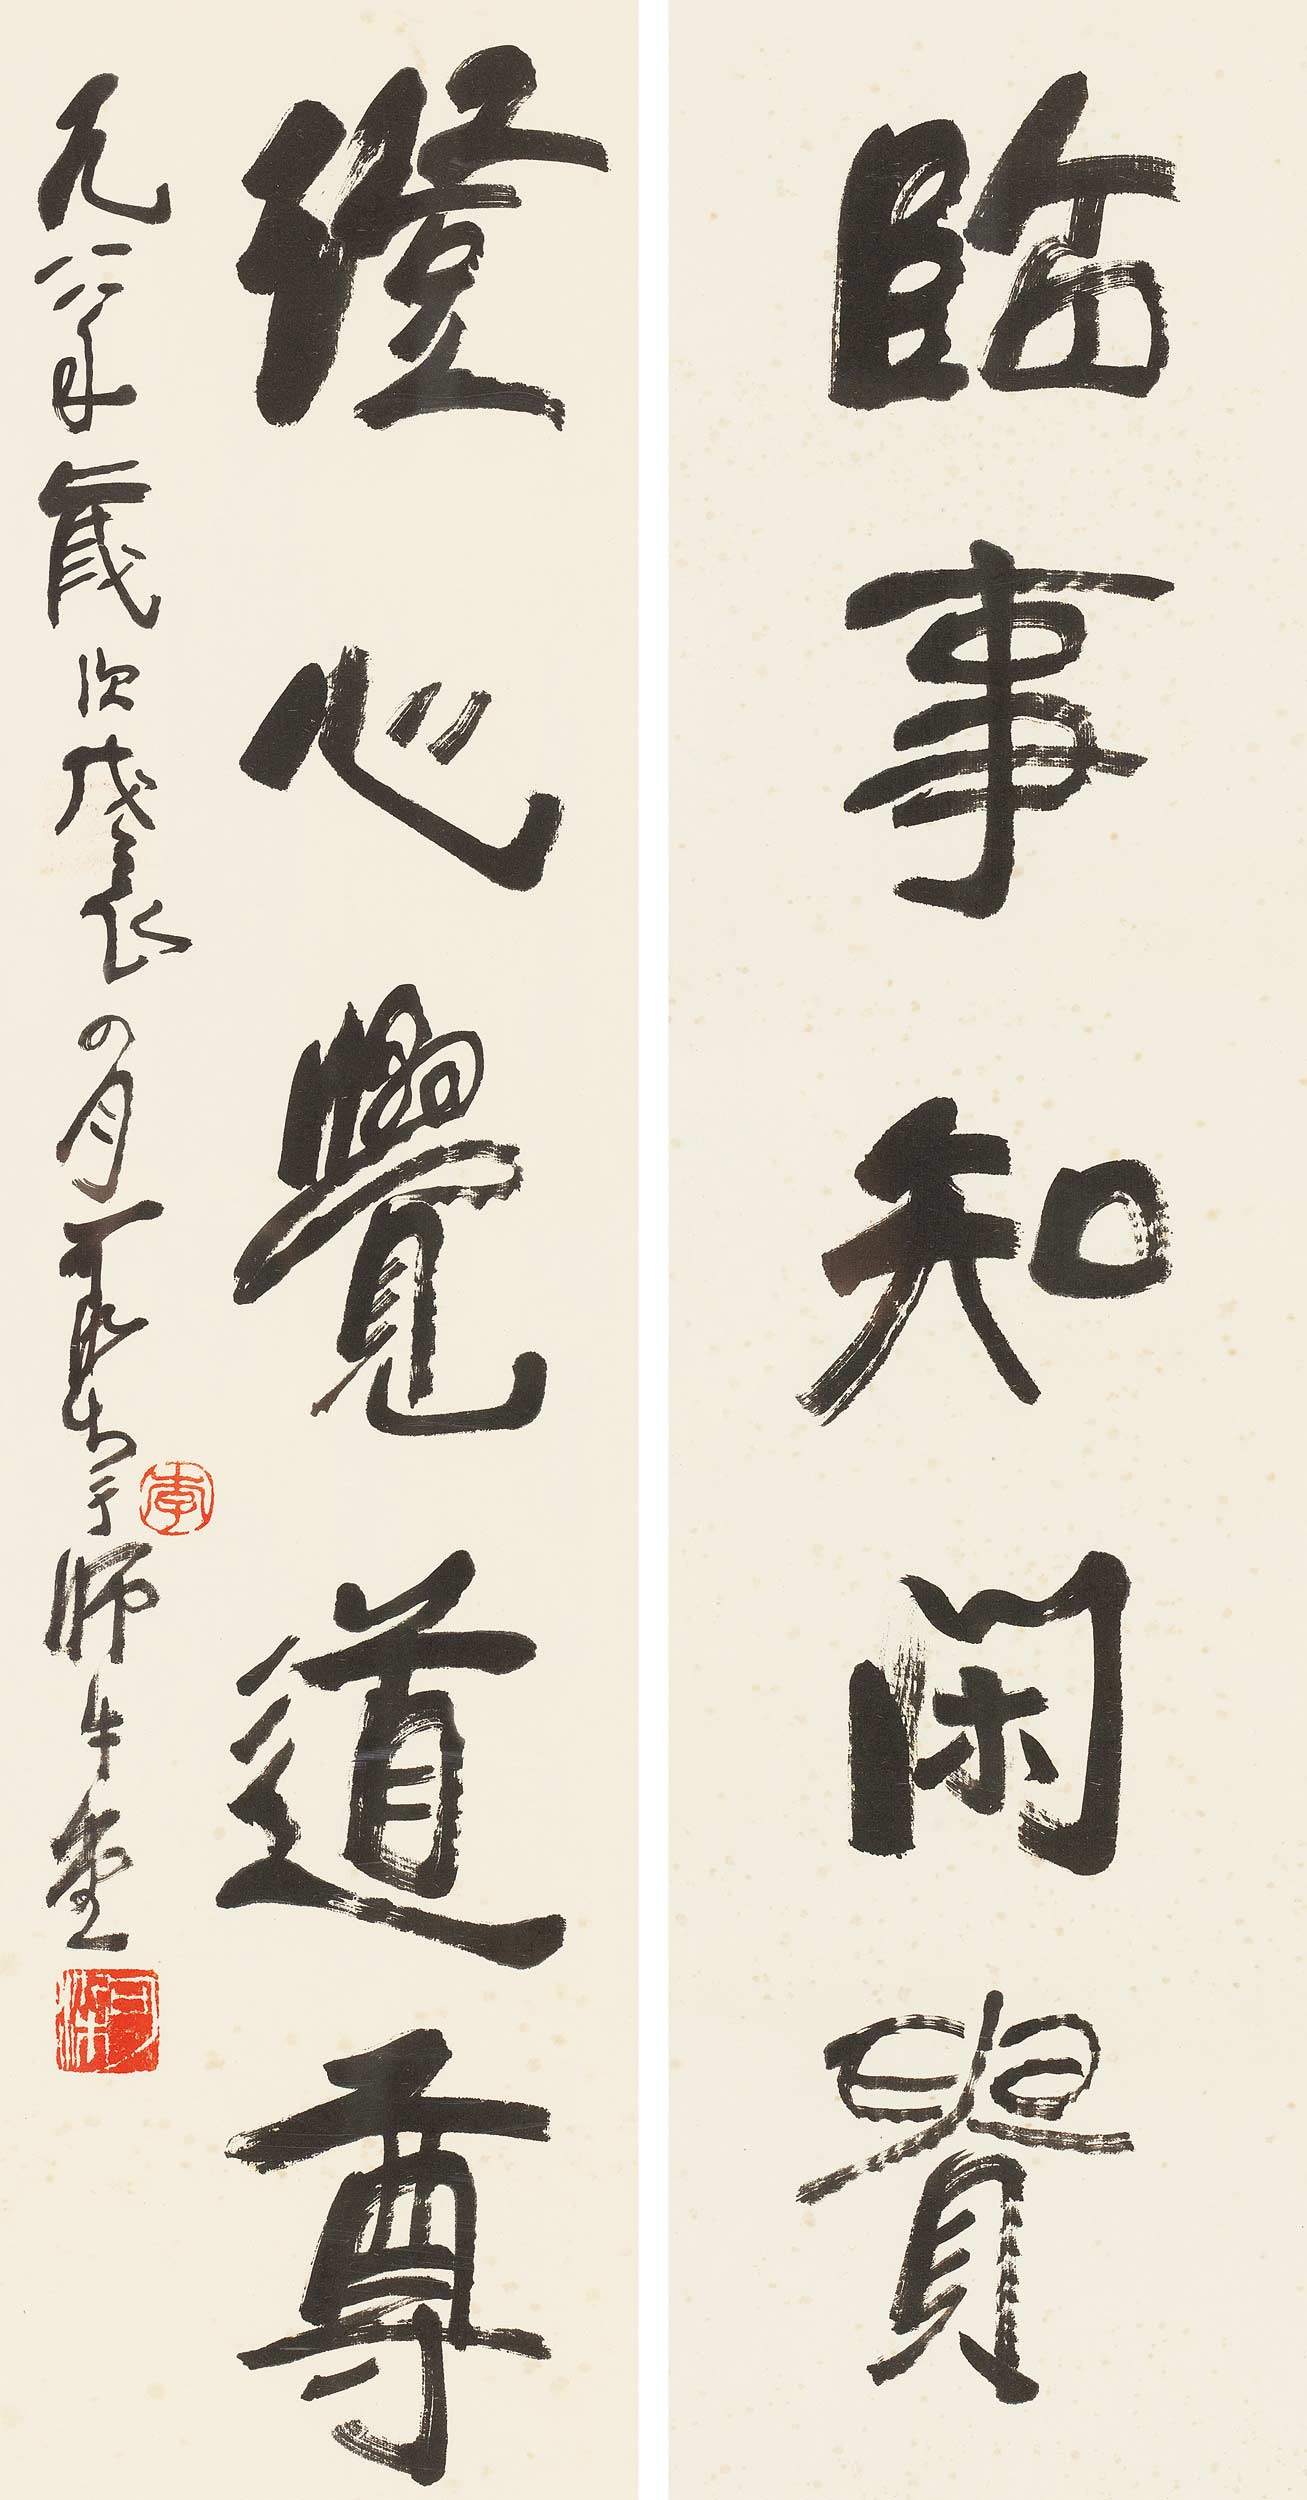 臨事知閑貴
澄心覺道尊
一九八八年歲次戊辰四月可染書于師牛堂
李
可染